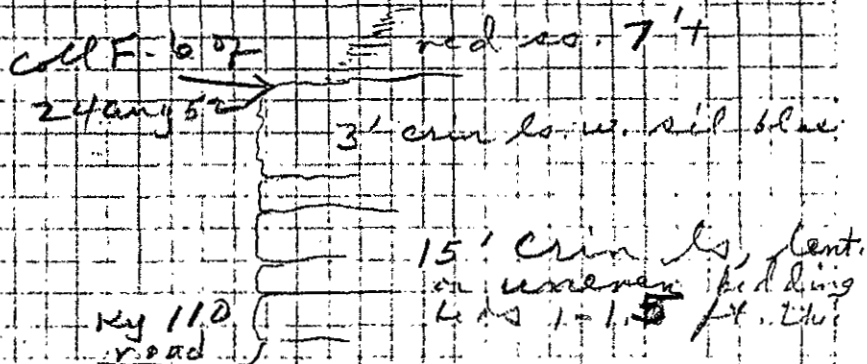 coll F-6 of
24 aug 52
red ss. 7'+
3' crin ls. w. sil blas.
15' crin ls, lent.
in uneven bedding
beds 1-1.5 ft. thi
Ky 110
road